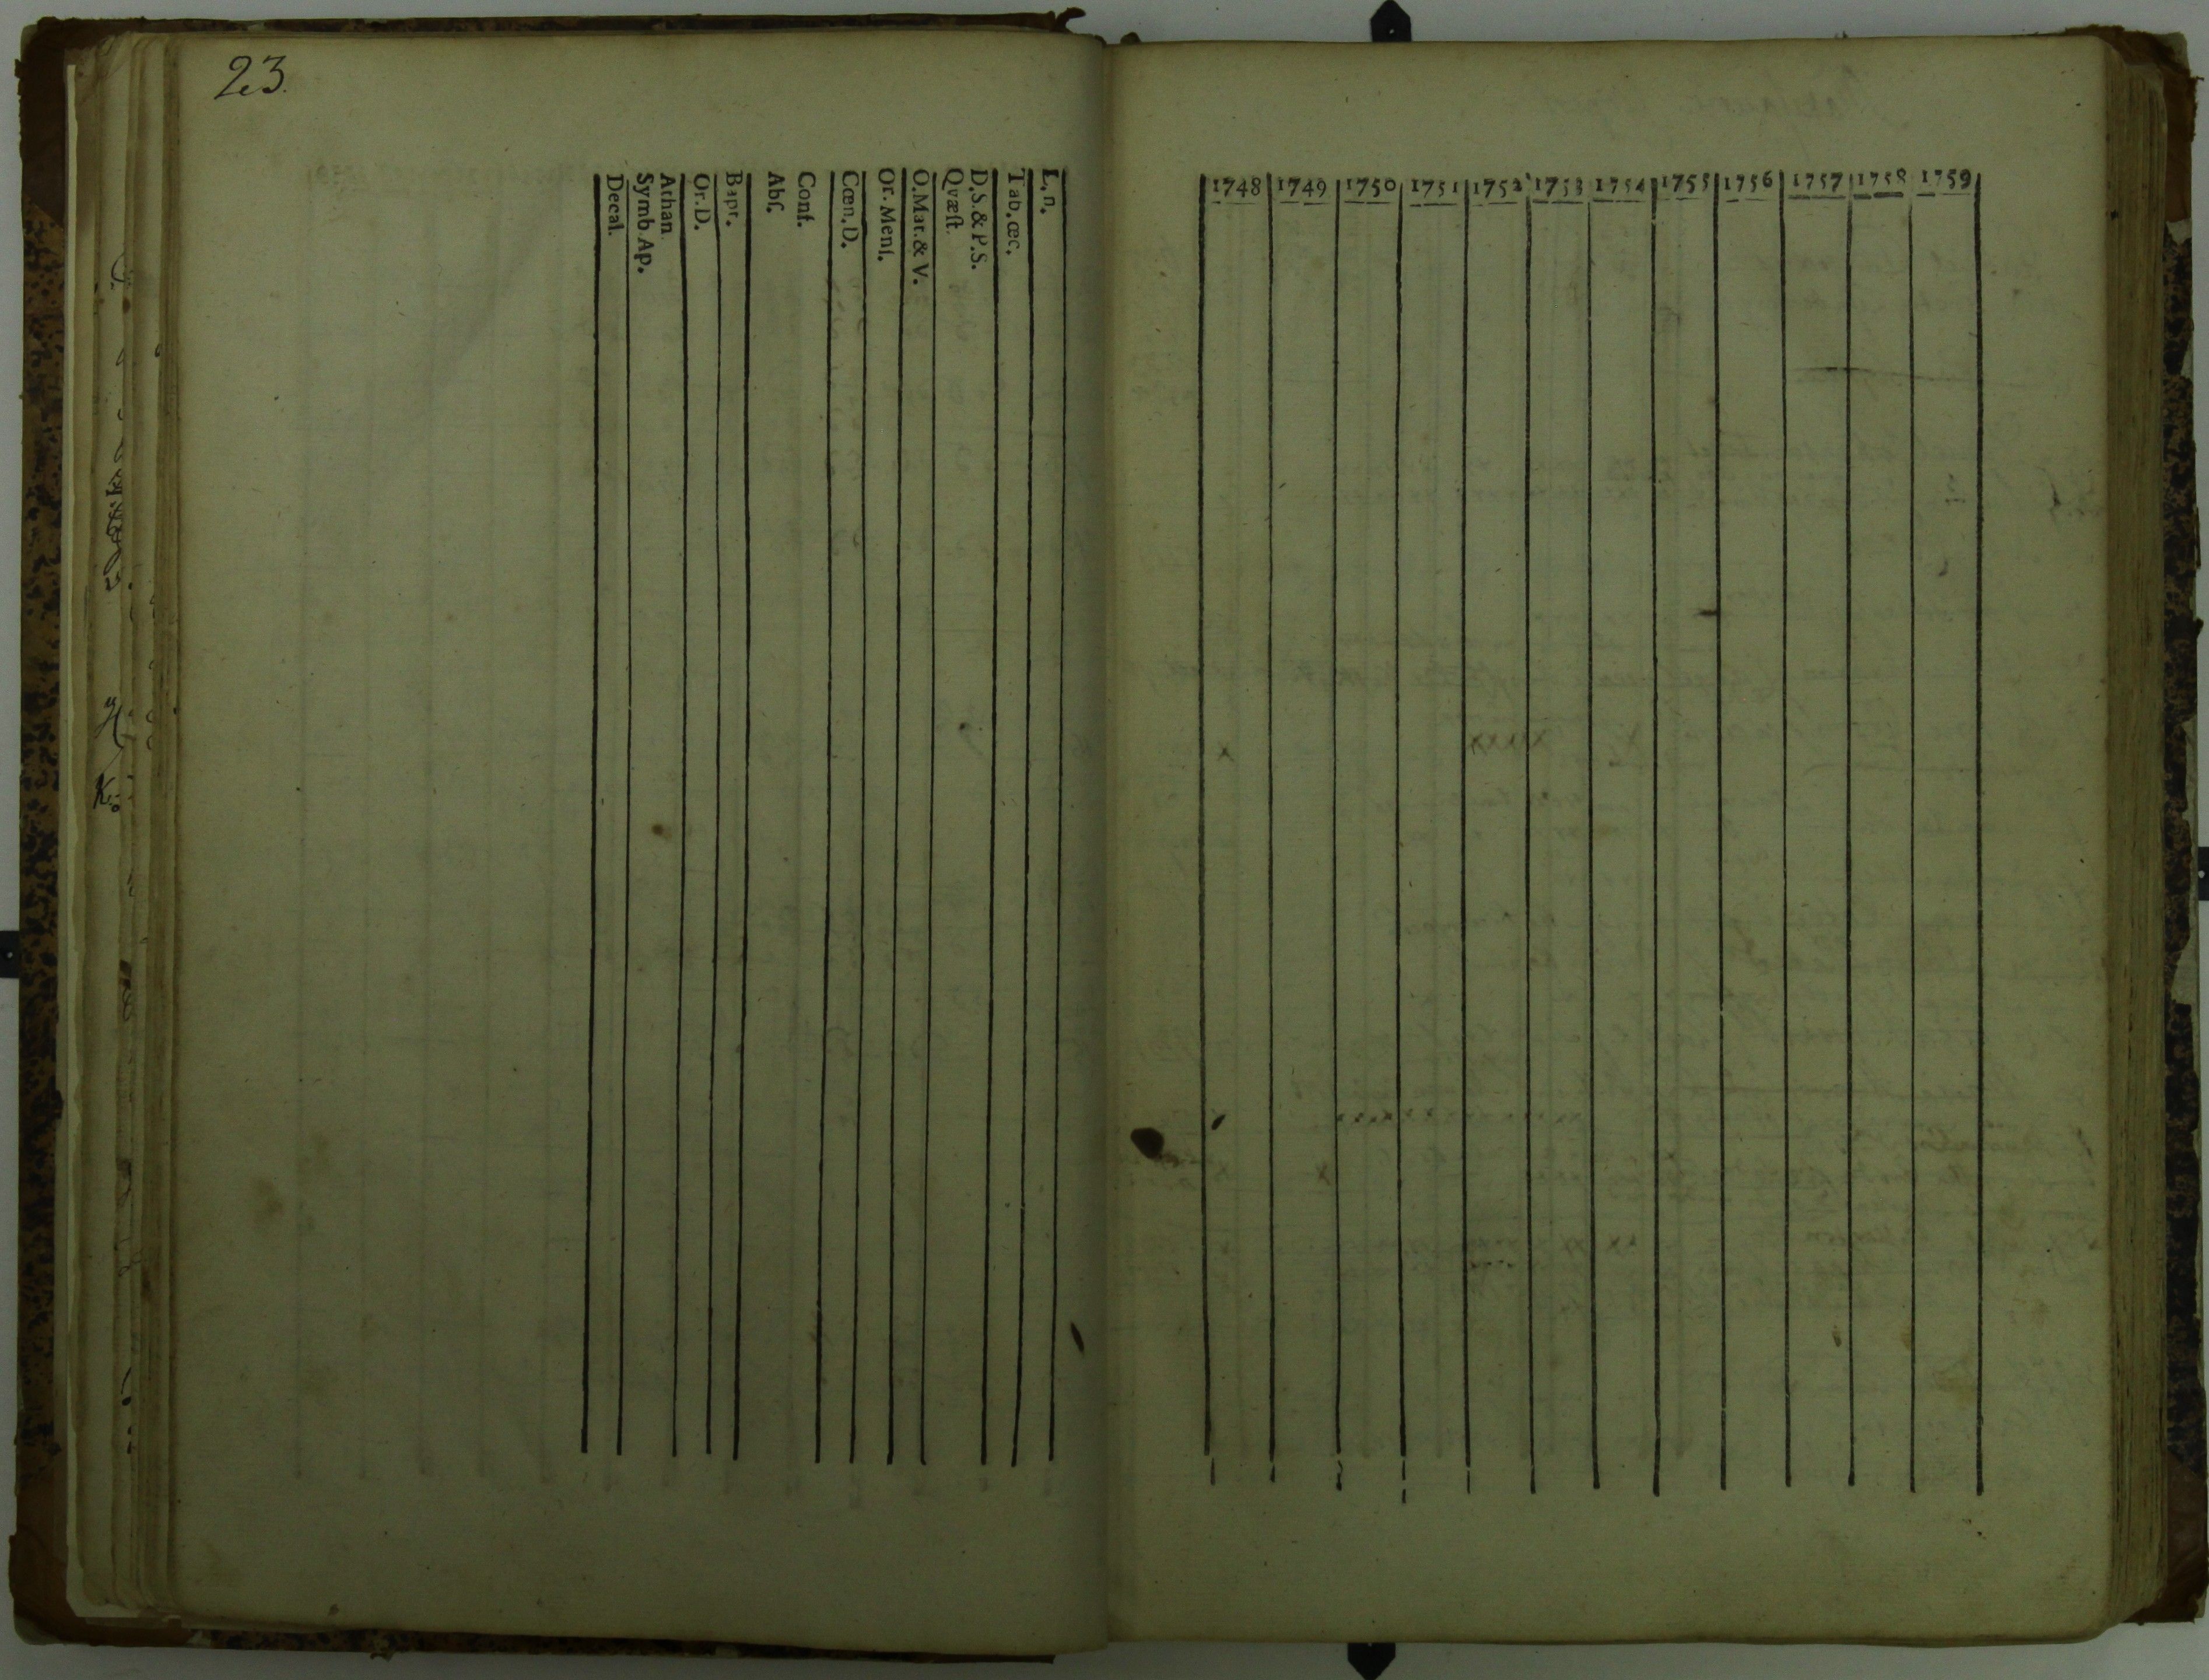 23.
Decal.
Symb. Ap.
Athan.
Or. D.
Bapt.
Abſ.
Conf.
Cœn. D.
Or. Menſ.
O. Mat. & V.
Qvæſt.
D. S. & P. S.
Tab. œc.
L. n.
1748 1749 1750 1751 1752 1753 1754 1755 1756 1757 1758 1759